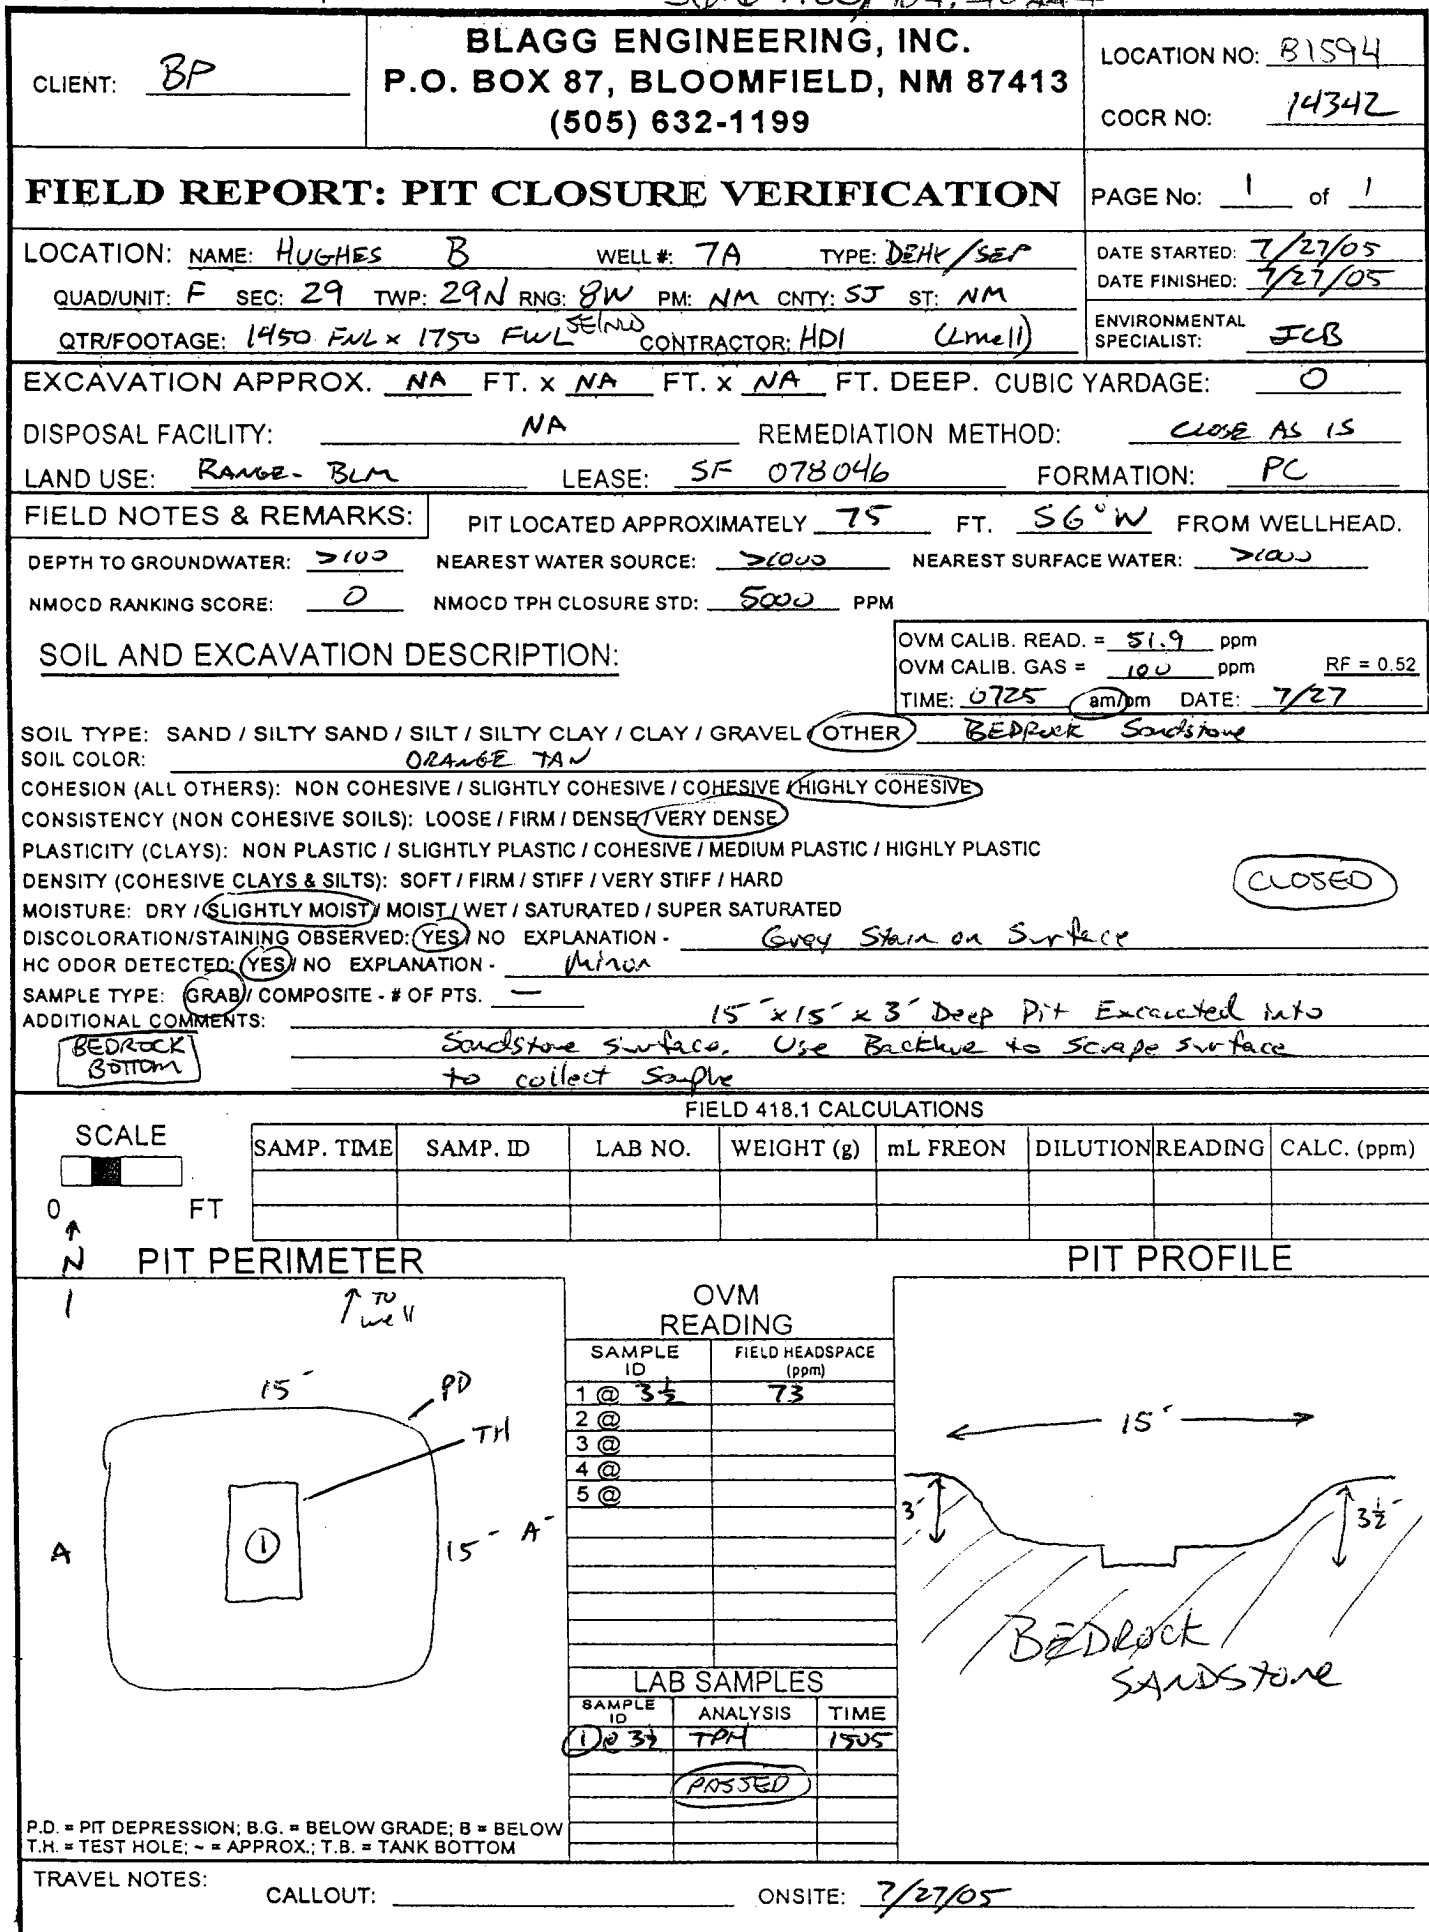 BLAGG ENGINEERING, INC.
P.O. BOX 87, BLOOMFIELD, NM 87413
(505) 632-1199
CLIENT: BP
LOCATION NO: B1594
COCR NO: 14342
FIELD REPORT: PIT CLOSURE VERIFICATION
PAGE No: 1 of 1
LOCATION: NAME: HUGHES B WELL #: 7A TYPE: DEHY/SEP
QUAD/UNIT: F SEC: 29 TWP: 29N RNG: 8W PM: NM CNTY: SJ ST: NM
QTR/FOOTAGE: 1450 FNL x 1750 FWL SE/NW CONTRACTOR: HDI
DATE STARTED: 7/27/05
DATE FINISHED: 7/27/05
ENVIRONMENTAL SPECIALIST: JCB
EXCAVATION APPROX. NA FT. x NA FT. x NA FT. DEEP. CUBIC YARDAGE: 0
DISPOSAL FACILITY: NA REMEDIATION METHOD: CLOSE AS IS
LAND USE: RANGE - BLM LEASE: SF 078046 FORMATION: PC
FIELD NOTES & REMARKS: PIT LOCATED APPROXIMATELY 75 FT. S6°W FROM WELLHEAD.
DEPTH TO GROUNDWATER: >100 NEAREST WATER SOURCE: >1000 NEAREST SURFACE WATER: >1000
NMOCD RANKING SCORE: 0 NMOCD TPH CLOSURE STD: 5000 PPM
SOIL AND EXCAVATION DESCRIPTION:
OVM CALIB. READ. = 51.9 ppm
OVM CALIB. GAS = 100 ppm RF = 0.52
TIME: 0725 am/pm DATE: 7/27
SOIL TYPE: SAND / SILTY SAND / SILT / SILTY CLAY / CLAY / GRAVEL / OTHER BEDROCK Sandstone
SOIL COLOR: ORANGE TAN
COHESION (ALL OTHERS): NON COHESIVE / SLIGHTLY COHESIVE / COHESIVE / HIGHLY COHESIVE
CONSISTENCY (NON COHESIVE SOILS): LOOSE / FIRM / DENSE / VERY DENSE
PLASTICITY (CLAYS): NON PLASTIC / SLIGHTLY PLASTIC / COHESIVE / MEDIUM PLASTIC / HIGHLY PLASTIC
DENSITY (COHESIVE CLAYS & SILTS): SOFT / FIRM / STIFF / VERY STIFF / HARD
CLOSED
MOISTURE: DRY / SLIGHTLY MOIST / MOIST / WET / SATURATED / SUPER SATURATED
DISCOLORATION/STAINING OBSERVED: YES / NO EXPLANATION - Grey Stain on Surface
HC ODOR DETECTED: YES / NO EXPLANATION - Minor
SAMPLE TYPE: GRAB / COMPOSITE - # OF PTS. —
ADDITIONAL COMMENTS: 15' x 15' x 3' Deep Pit Excavated into
Sandstone surface. Use Backhoe to Scrape surface
to collect Sample
BEDROCK
BOTTOM
FIELD 418.1 CALCULATIONS
SCALE
0 FT
SAMP. TIME SAMP. ID LAB NO. WEIGHT (g) mL FREON DILUTION READING CALC. (ppm)
N
PIT PERIMETER
TO well
15'
PD
TH
A
1
15'
A'
OVM READING
SAMPLE ID FIELD HEADSPACE (ppm)
1 @ 3½ 73
2 @
3 @
4 @
5 @
LAB SAMPLES
SAMPLE ID ANALYSIS TIME
1 @ 3½ TPH 1505
PASSED
PIT PROFILE
15'
3'
3½'
BEDROCK
SANDSTONE
P.D. = PIT DEPRESSION; B.G. = BELOW GRADE; B = BELOW
T.H. = TEST HOLE; ~ = APPROX.; T.B. = TANK BOTTOM
TRAVEL NOTES: CALLOUT: ONSITE: 7/27/05